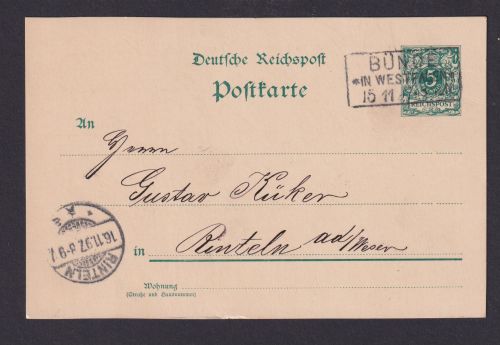 Deutsche Reichspost
Postkarte
BÜNDE
*IN WESTFALEN*
15 11
5
REICHSPOST
An
Herrn
Gustav Küker
in Rinteln ad/Weser
RINTELN
16.11.97. 8-9V.
Wohnung
(Straße und Hausnummer)